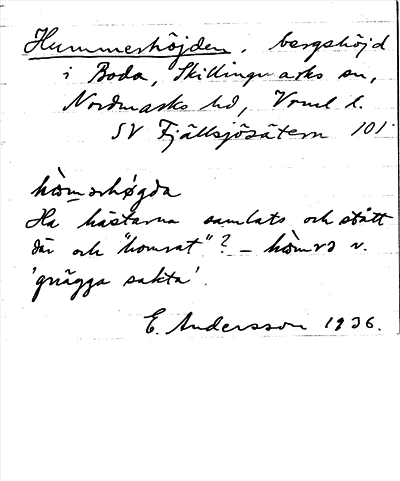 Hummerhöjden, bergshöjd
i Boda, Skillingmarks sn,
Nordmarks hd, Vrml l.
SV Fjällsjösätern 101.
hòmərhøgda
Ha hästarna samlats och stått
där och "homrat"? – hòmrə v.
'gnägga sakta'.
E. Andersson 1936.